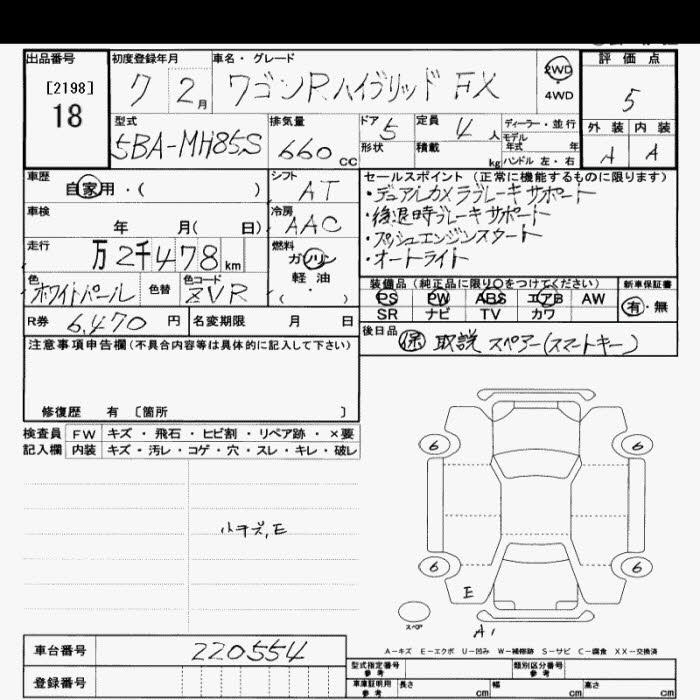 出品番号
[2198]
18
初度登録年月
7 2月
車名・グレード
ワゴンRハイブリッド FX
2WD
・
4WD
評価点
5
外装 内装
A A
型式
5BA-MH85S
排気量
660cc
ドア 5
形状
定員 4人
積載 kg
ディーラー・並行
モデル
年式 年
ハンドル 左・右
車歴
自家用・( )
シフト
AT
車検
年 月( 日)
冷房
AAC
走行
万2千478km
燃料
ガソリン
軽・油
・( )
色
ホワイトパール
色替
色コード
ZVR
R券 6,470円
名変期限 月 日
セールスポイント(正常に機能するものに限ります)
・デュアルカメラブレーキサポート
・後退時ブレーキサポート
・プッシュエンジンスタート
・オートライト
装備品(純正品に限り〇をつけてください)
PS PW ABS エアB AW
SR ナビ TV カワ
新車保証書
有・無
後日品
保 取説 スペアー(スマートキー)
注意事項申告欄(不具合内容等は具体的に記入して下さい)
修復歴 有 〔箇所 〕
検査員 FW キズ・飛石・ヒビ割・リペア跡・×要
記入欄 内装 キズ・汚レ・コゲ・穴・スレ・キレ・破レ
小キズ,E
6 6
6 6
E
スペア
A1
A-キズ E-エクボ U-凹み W-補修跡 S-サビ C-腐食 XX-交換済
車台番号 220554
登録番号
型式指定番号
参考
類別区分番号
参考
車庫証明用
参考
長さ cm 幅 cm 高さ cm